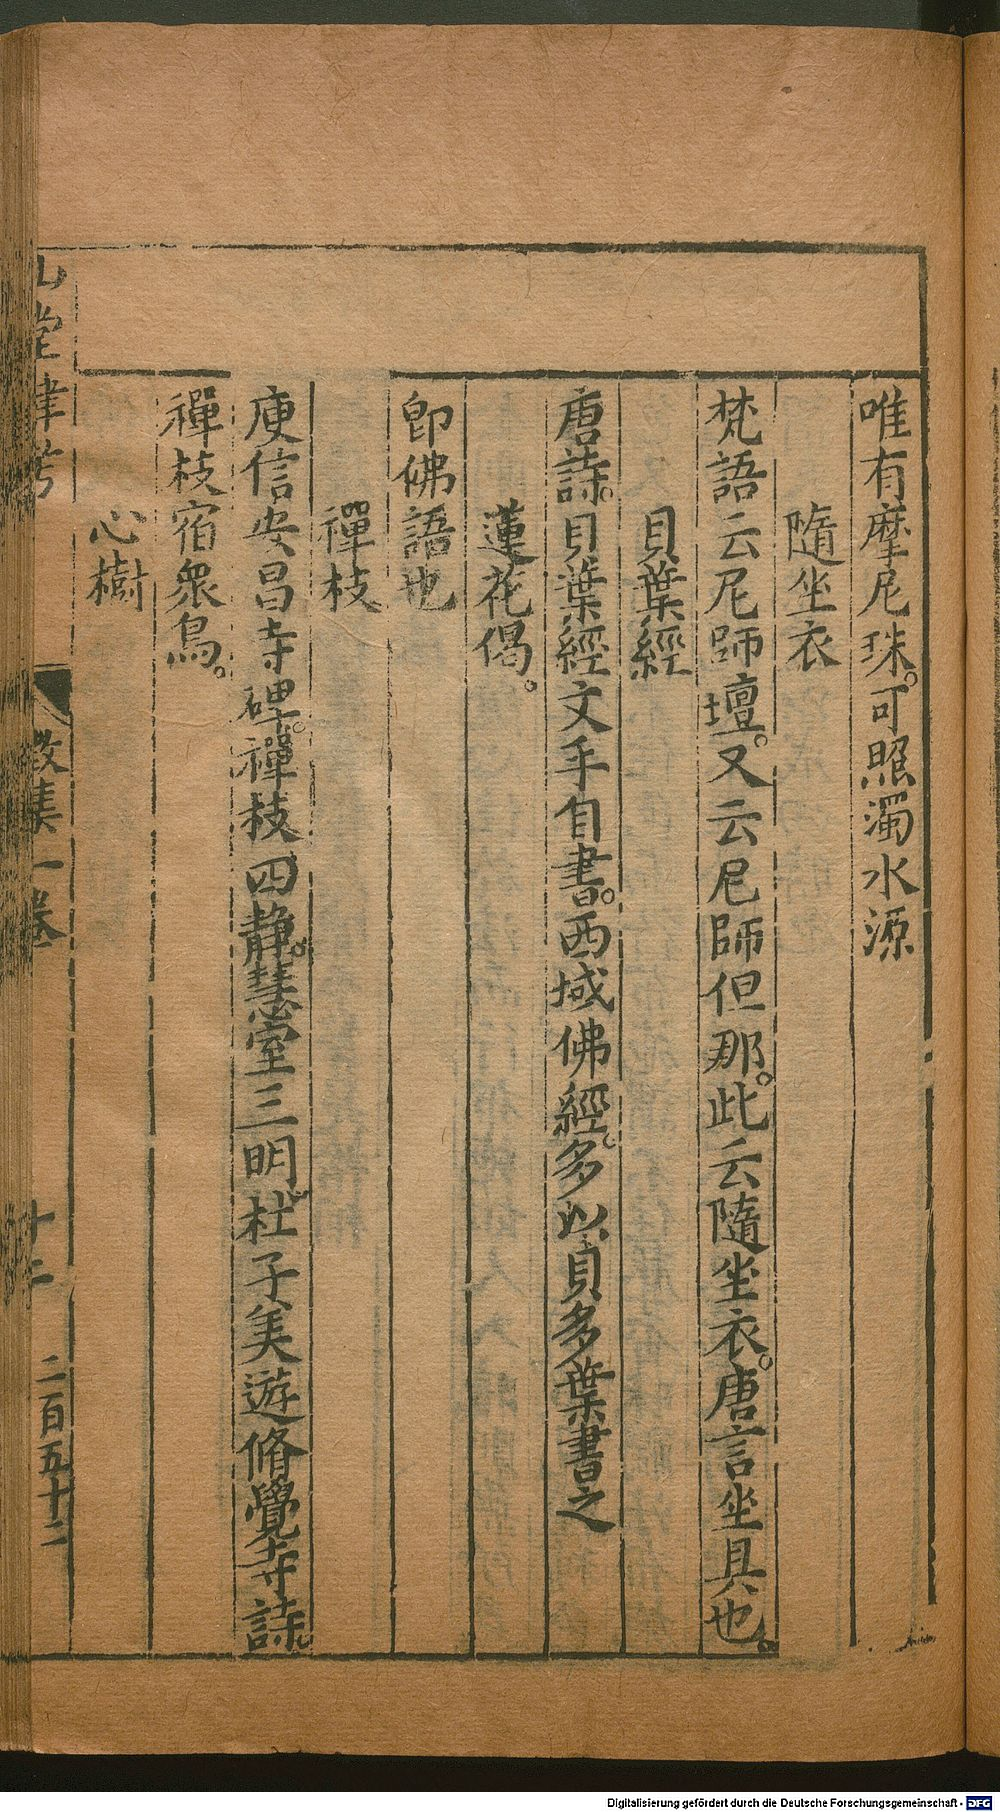 唯有摩尼珠。可照濁水源
隨坐衣
梵語云尼師壇。又云尼師但那。此云隨坐衣。唐言坐具也。
貝葉經
唐詩。貝葉經文手自書。西域佛經。多以貝多葉書之
蓮花偈。
卽佛語也
禪枝
庾信安昌寺碑。禪枝四静。慧室三明。杜子美遊脩覺寺詩。
禪枝宿衆鳥。
心樹
山堂肆考 徵集一卷 十二 二百五十二
Digitalisierung gefördert durch die Deutsche Forschungsgemeinschaft - DFG